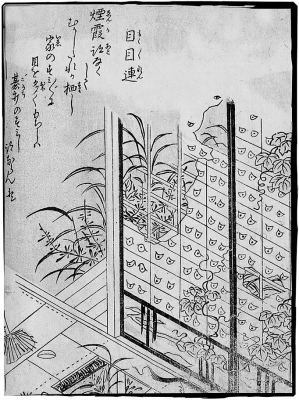 目目連
煙霞跡なく
して
むかしたれか栖し
家のすみ〲に
目を多くもちしは
碁打のすみし跡ならんか